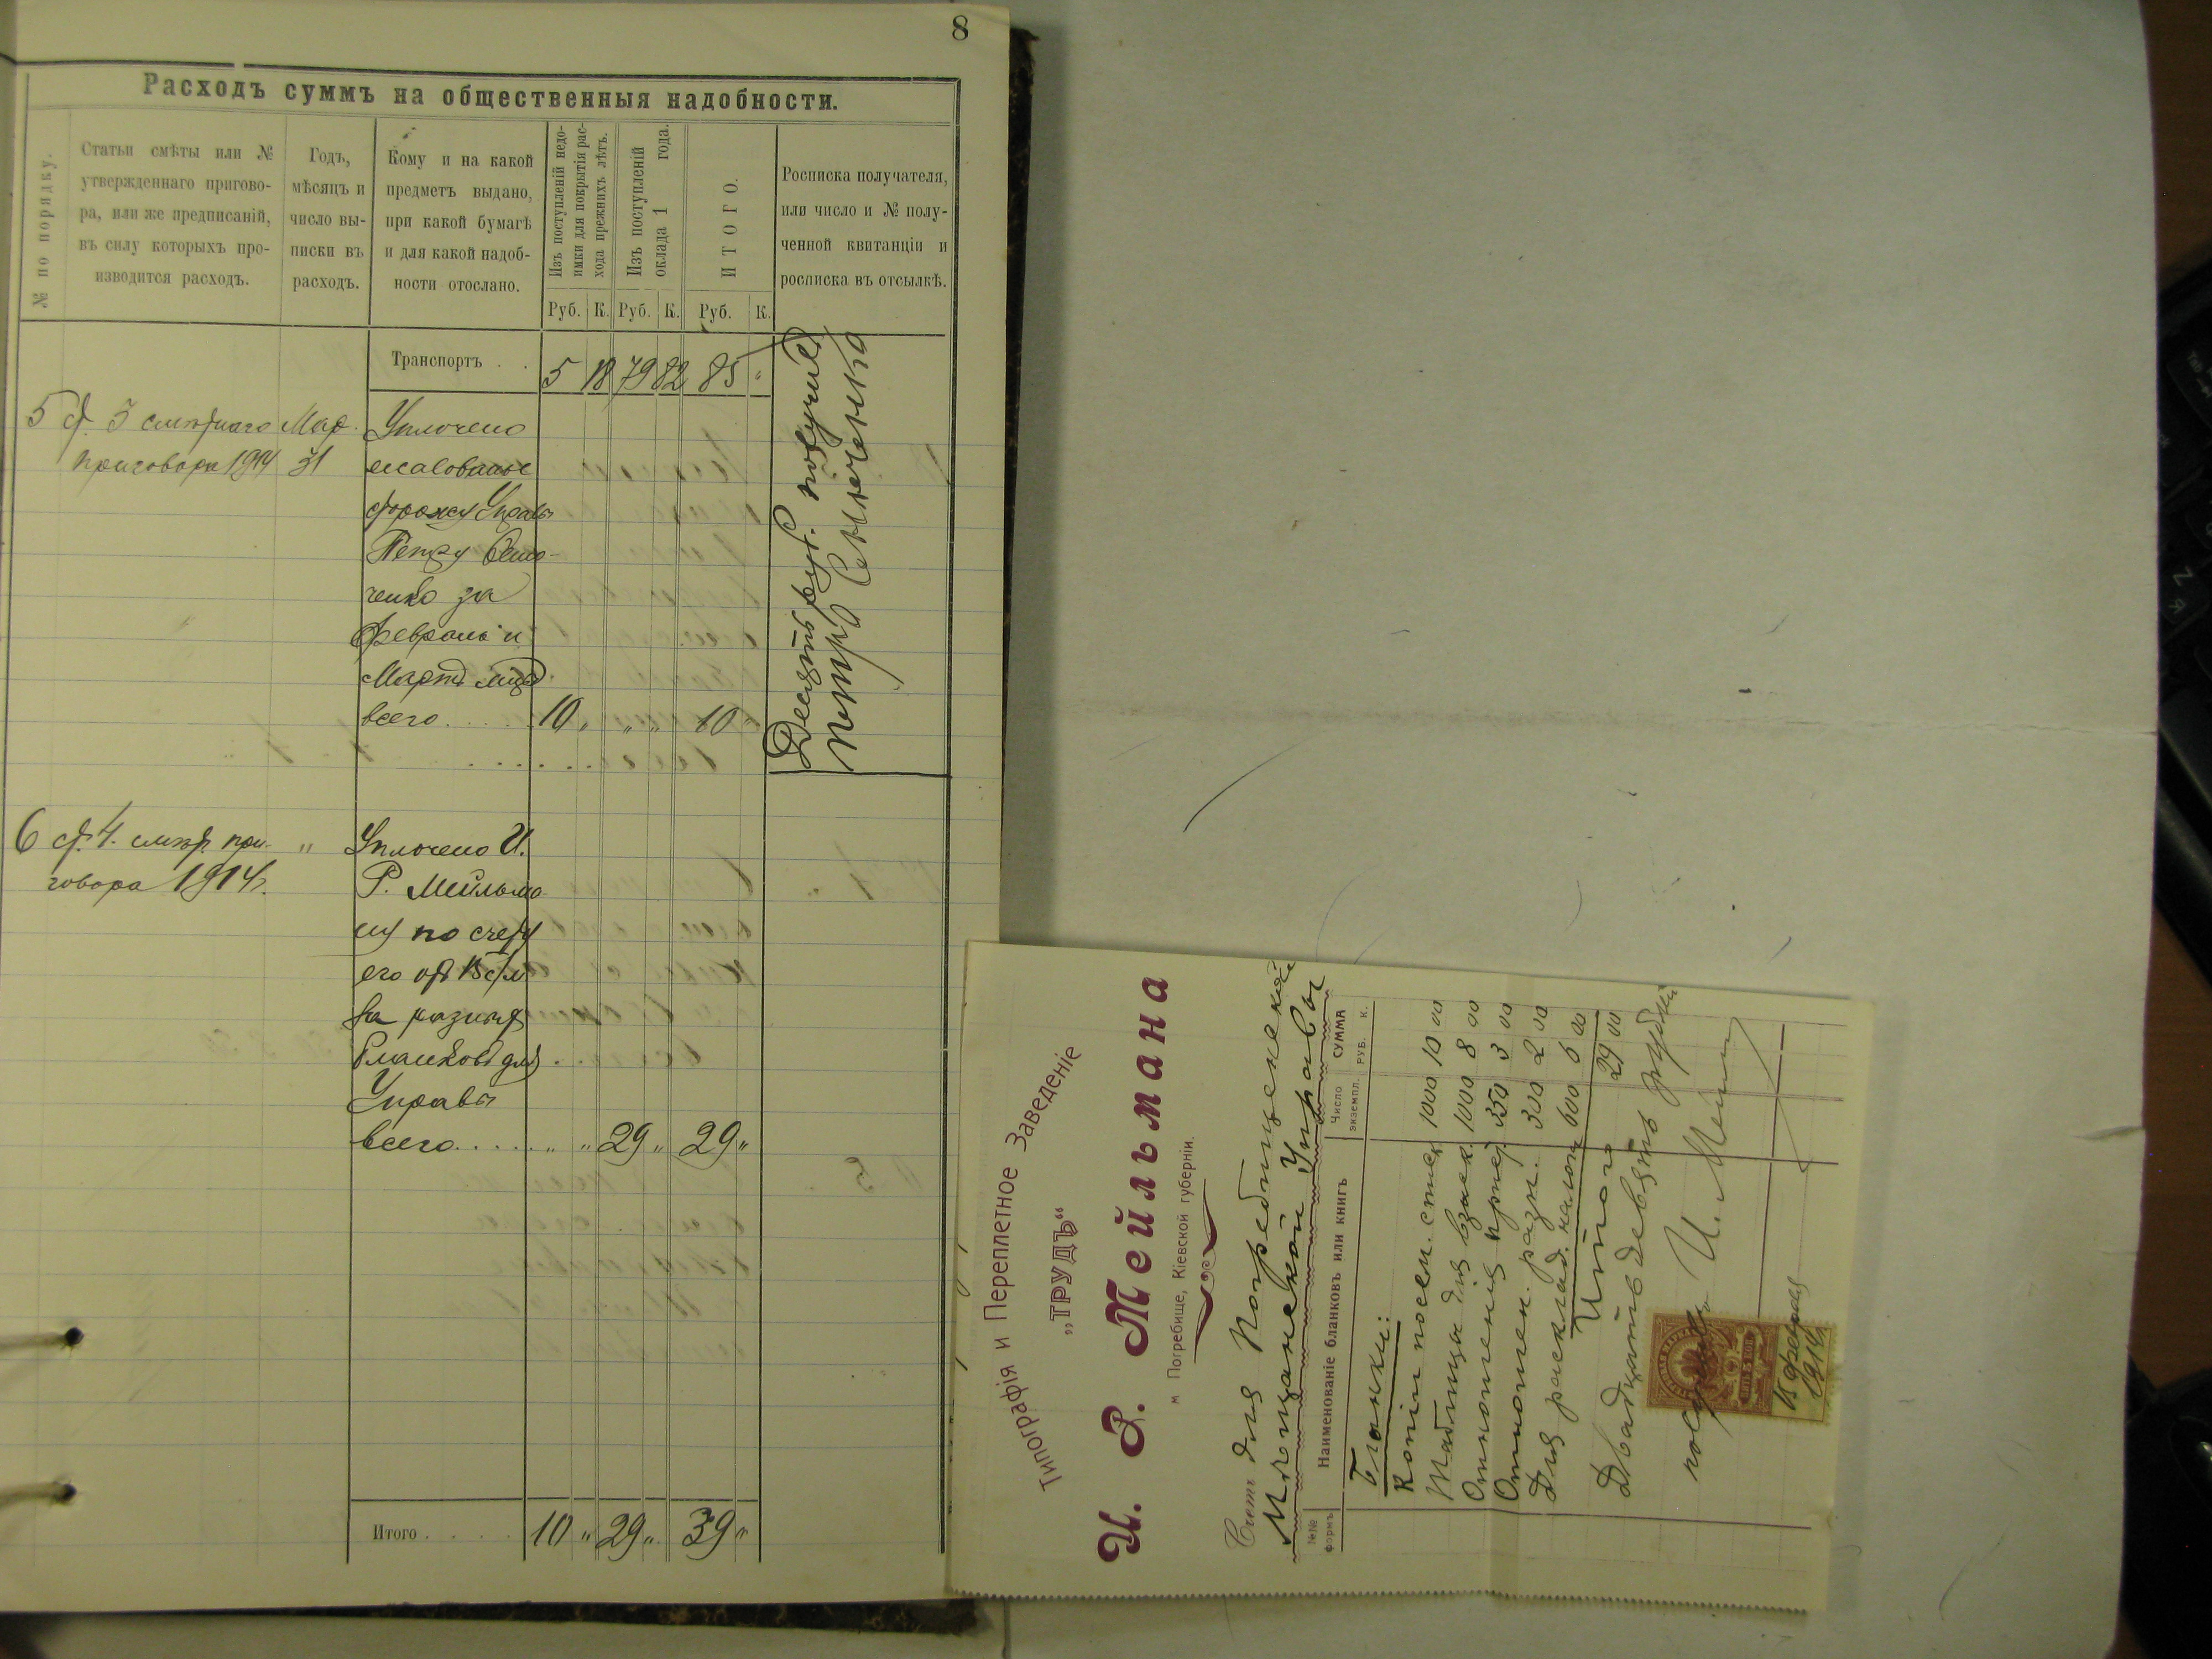 8
Расходъ суммъ на общественныя надобности.
№ по порядку.
Статьи смѣты или №
утвержденнаго пригово-
ра, или же предписаній,
въ силу которыхъ про-
изводится расходъ.
Годъ,
мѣсяцъ и
число вы-
писки въ
расходъ.
Кому и на какой
предметъ выдано,
при какой бумагѣ
и для какой надоб-
ности отослано.
Изъ поступленій недо-
имки для покрытія рас-
хода прежнихъ лѣтъ.
Изъ поступленій
оклада 1 года.
ИТОГО.
Росписка получателя,
или число и № полу-
ченной квитанціи и
росписка въ отсылкѣ.
Руб. К. Руб. К. Руб. К.
Транспортъ . . 5 18 79 82 85 "
5 ст. 5 смѣтнаго Мар. Уплочено
приговора 1914 31 жалованье
сторожу Управы
Петру
ченко за
февраль и
Мартъ
всего . . . . . 10 " " " 10 "
Десять руб. получилъ
Петръ
6 ст. 4. смѣт. при- " Уплочено И.
говора 1914 г. Р. Мейльма-
ну по счету
его отъ 15 с/м
за разныхъ
бланковъ для
Управы
всего . . . . . " " 29 " 29 "
Итого . . . . 10 " 29 " 39 "
Типографія и Переплетное Заведеніе
„ТРУДЪ“
И. Р. Мейльмана
м Погребище, Кіевской губерніи.
Счетъ для Погребищенской
Мѣщанской Управы
№№ формъ
Наименованіе бланковъ или книгъ
Число экземпл.
СУММА
РУБ. К.
Бланки:
Копіи посем. списк. 1000 10 00
Таблица для взыск. 1000 8 00
Отношенія 350 3 00
Отношен. разн. 300 2 00
Для расклад. налог. 600 6 00
Итого 29 00
Двадцать девять рублей
получилъ И. Мейл
ПЯТЬ 5 КОП.
15 февраля
1914 г.